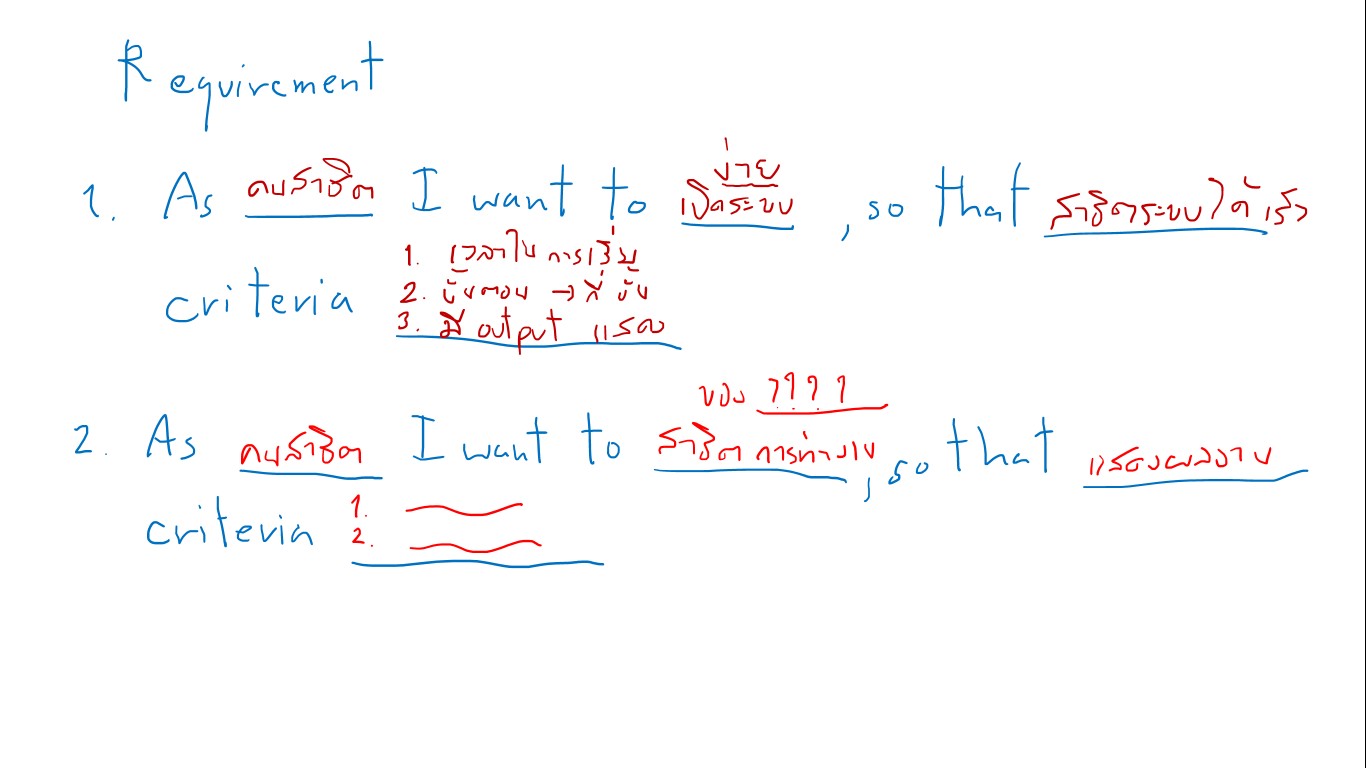 Requirement
1. As คนสาธิต I want to เปิดระบบ ง่าย, so that สาธิตระบบได้เร็ว
criteria
1. เวลาในการเริ่ม
2. ขั้นตอน → กี่ ขั้น
3. มี output แสดง
2. As คนสาธิต I want to สาธิต การทำงาน ของ ????, so that แสดงผลงาน
criteria
1.
2.